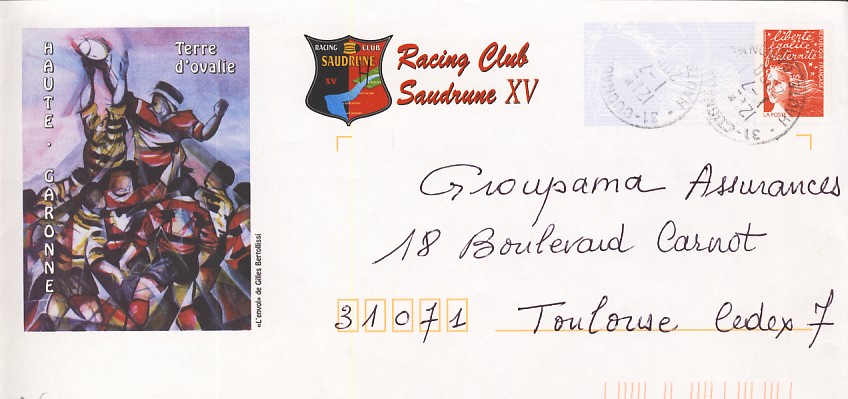 HAUTE · GARONNE
Terre
d'ovalie
«L'envol» de Gilles Bertolissi
RACING CLUB
SAUDRUNE
XV
Racing Club
Saudrune XV
liberté
égalité
fraternité
LA POSTE
Groupama Assurances
18 Boulevard Carnot
31071 Toulouse Cedex 7